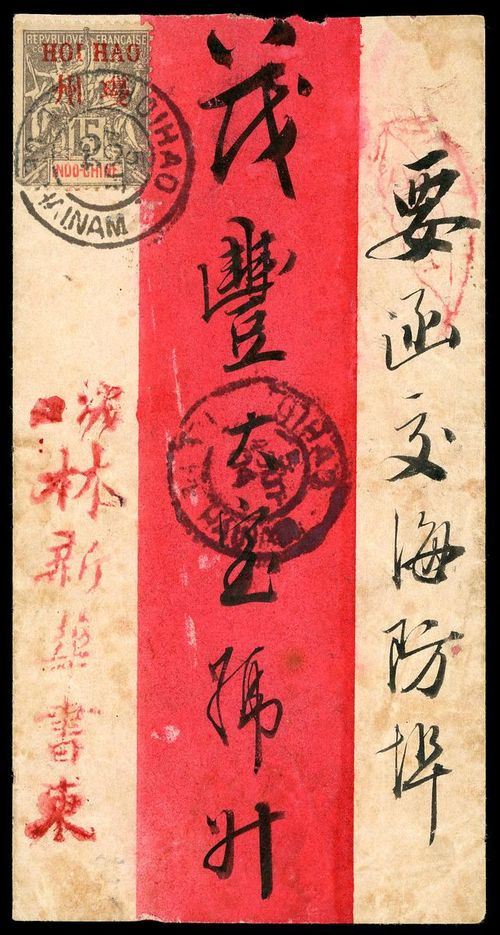 REPUBLIQUE FRANÇAISE
HOI HAO
瓊州
15
INDO-CHINE
HOIHAO
要函交海防埠
茂豐大宝號升
HOIHAO
海口
林新華書柬